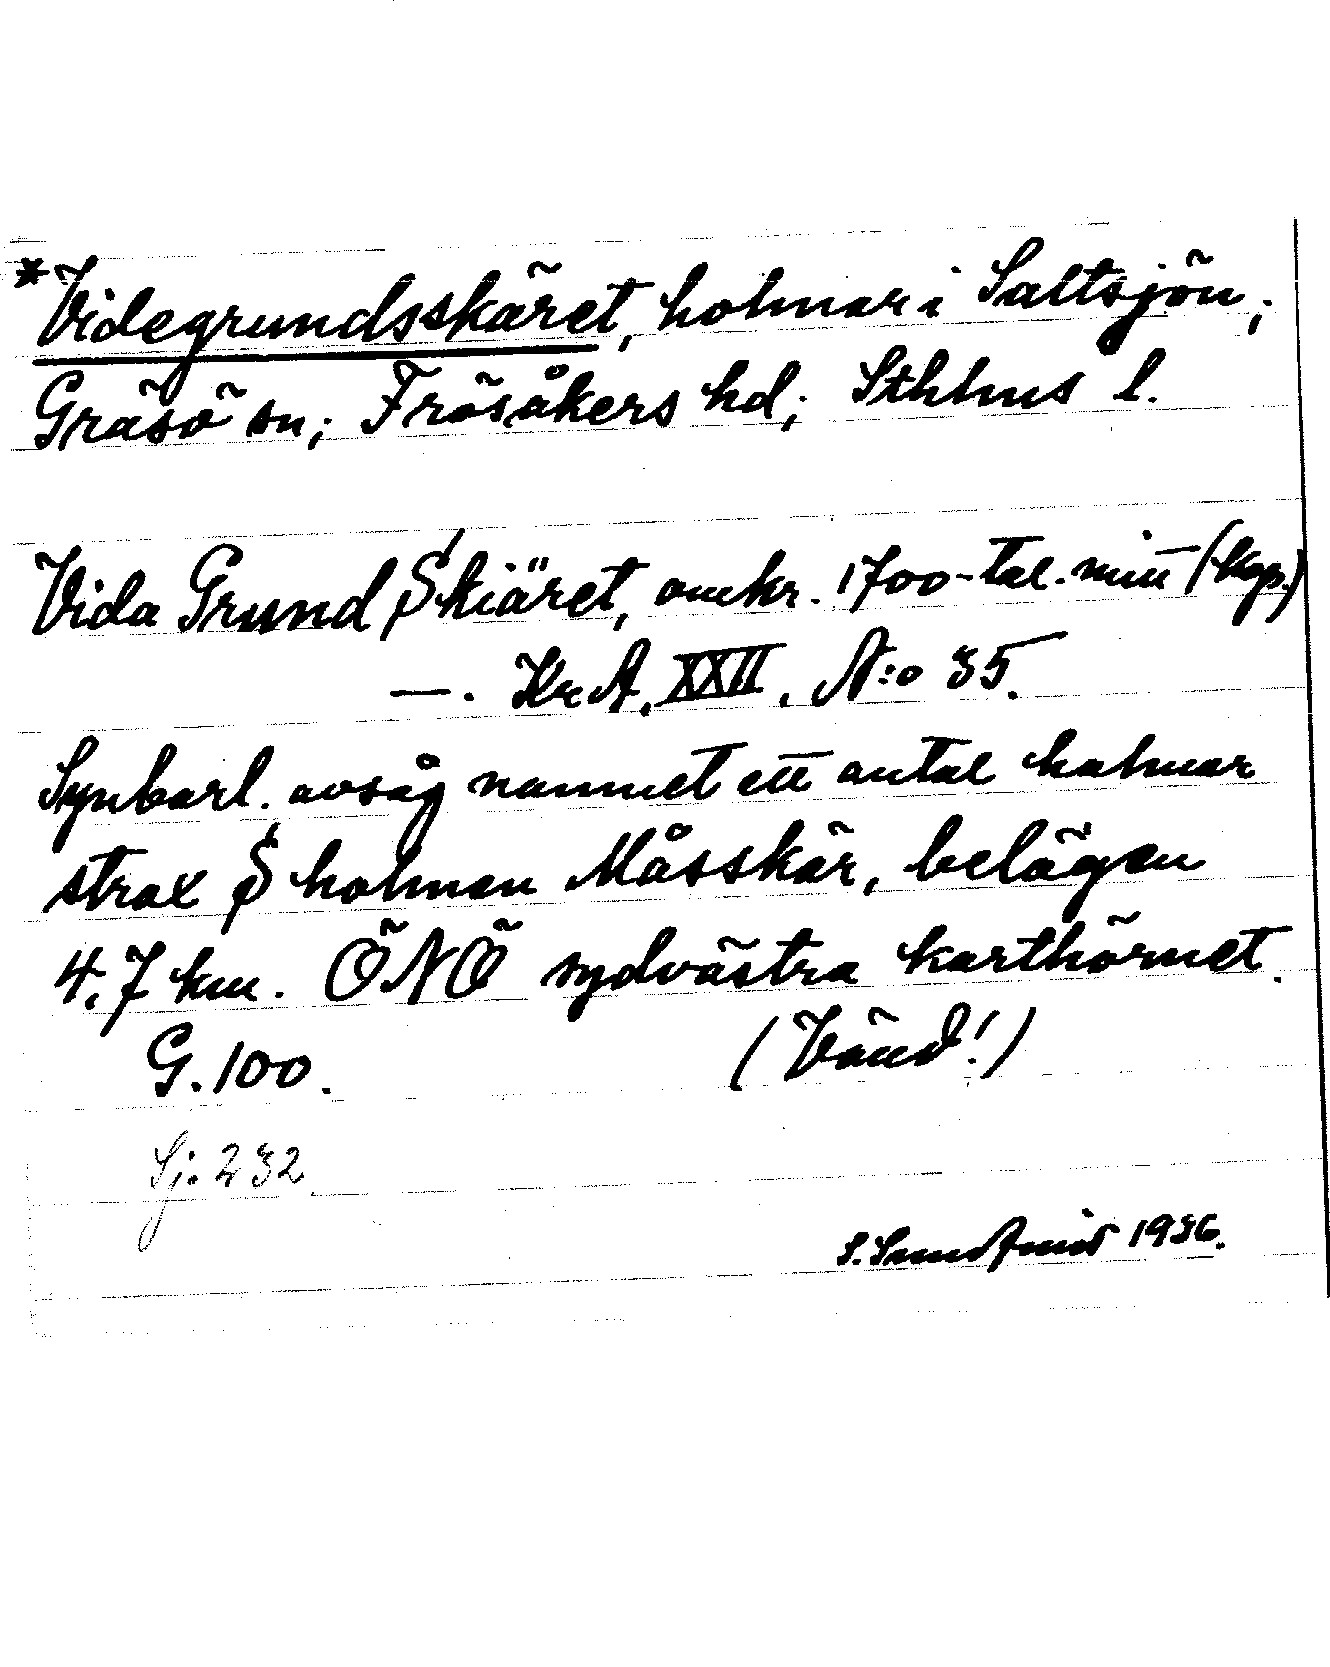 *Videgrundsskäret, holmar i Saltsjön;
Gräsö sn; Frösåkers hd; Sthlms l.
Vida Grund Skiäret, omkr. 1700-tal. mitt (kop.)
—. KrA. XXII. N:o 35.
Synbarl. avsåg namnet ett antal holmar
strax S holmen Måsskär, belägen
4,7 km. ÖNÖ sydvästra karthörnet.
G. 100. (Vänd!)
Sj: 232
1936.